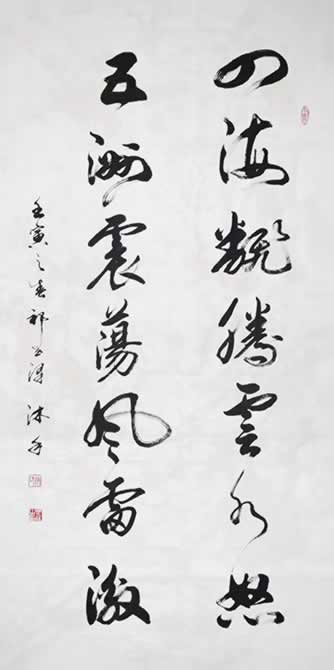 四海翻騰雲水怒
五洲震蕩風雷激
壬寅之春祁 沐手